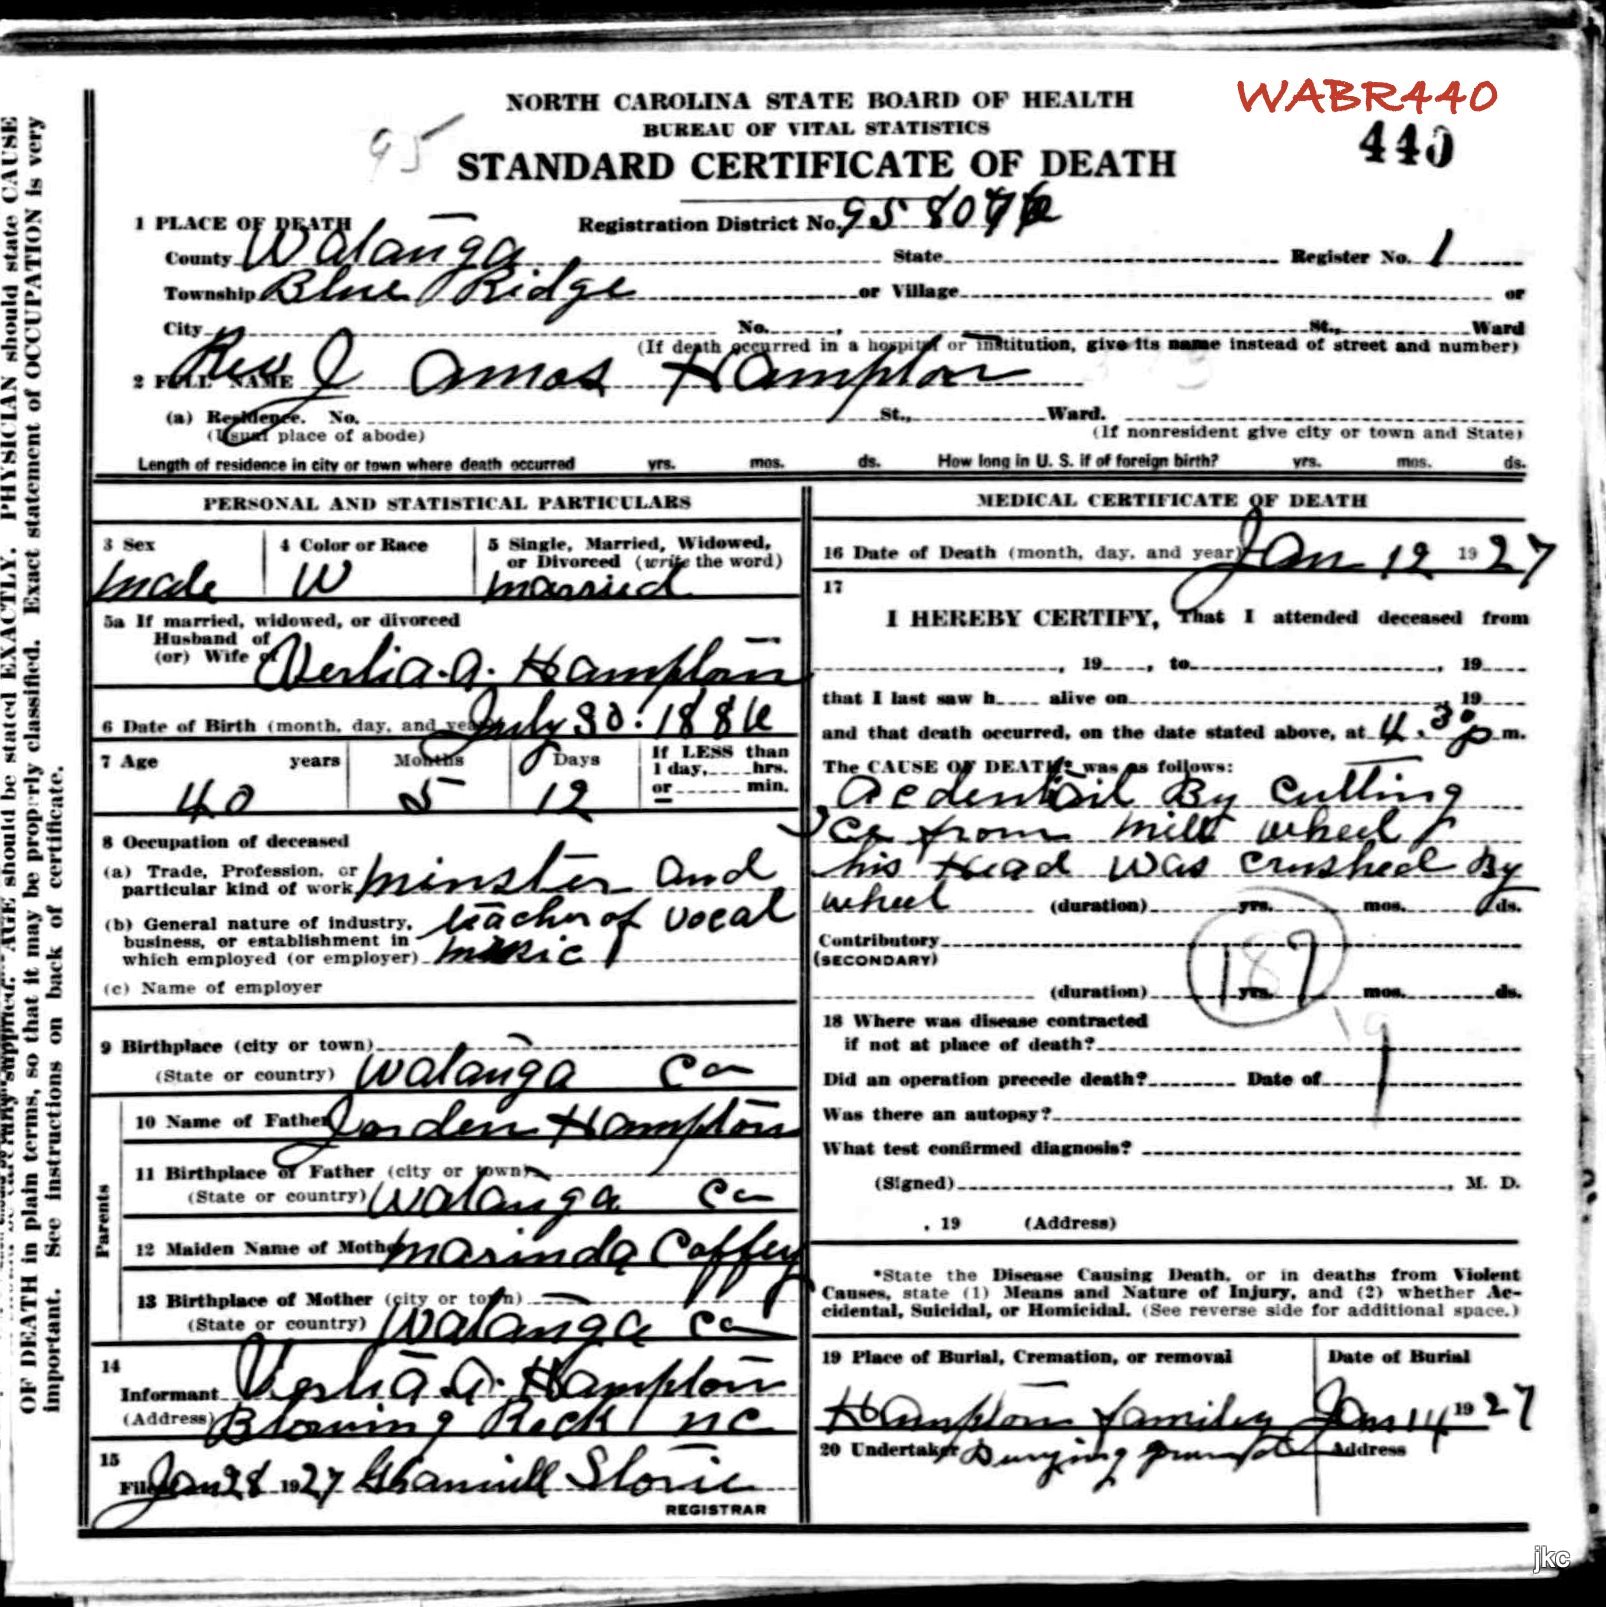 WABR440
NORTH CAROLINA STATE BOARD OF HEALTH
BUREAU OF VITAL STATISTICS
440
95
STANDARD CERTIFICATE OF DEATH
1 PLACE OF DEATH Registration District No. 95 80
County Watauga State Register No. 1
Township Blue Ridge or Village or
City No. , St., Ward
(If death occurred in a hospital or institution, give its name instead of street and number)
2 FULL NAME Rev J Amos Hampton
(a) Residence. No. St., Ward.
(Usual place of abode) (If nonresident give city or town and State)
Length of residence in city or town where death occurred yrs. mos. ds. How long in U. S. if of foreign birth? yrs. mos. ds.
PERSONAL AND STATISTICAL PARTICULARS
3 Sex 4 Color or Race 5 Single, Married, Widowed,
or Divorced (write the word)
male W married
5a If married, widowed, or divorced
Husband of
(or) Wife of Verlia. A. Hampton
6 Date of Birth (month, day, and year) July 30. 1886
7 Age years Months Days If LESS than
1 day, hrs.
or min.
40 5 12
8 Occupation of deceased
(a) Trade, Profession, or
particular kind of work minster and
(b) General nature of industry,
business, or establishment in
which employed (or employer) teacher of vocal
music
(c) Name of employer
9 Birthplace (city or town)
(State or country) Watauga Co
Parents
10 Name of Father Jorden Hampton
11 Birthplace of Father (city or town)
(State or country) Watauga Co
12 Maiden Name of Mother Marinda Coffey
13 Birthplace of Mother (city or town)
(State or country) Watauga Co
14
Informant Verlia. A. Hampton
(Address) Blowing Rock NC
15
Filed Jan 28 1927 Storie
REGISTRAR
MEDICAL CERTIFICATE OF DEATH
16 Date of Death (month, day, and year) Jan 12 1927
17
I HEREBY CERTIFY, That I attended deceased from
, 19 , to , 19
that I last saw h alive on , 19
and that death occurred, on the date stated above, at 4.30 p m.
The CAUSE OF DEATH* was as follows:
Acdentail By Cutting
Ice from mill wheel
his Head was crushed By
wheel (duration) yrs. mos. ds.
Contributory
(SECONDARY)
187
(duration) yrs. mos. ds.
18 Where was disease contracted
if not at place of death?
Did an operation precede death? Date of
Was there an autopsy?
What test confirmed diagnosis?
(Signed) , M. D.
, 19 (Address)
*State the Disease Causing Death, or in deaths from Violent
Causes, state (1) Means and Nature of Injury, and (2) whether Ac-
cidental, Suicidal, or Homicidal. (See reverse side for additional space.)
19 Place of Burial, Cremation, or removal Date of Burial
Hampton family Jan 14 1927
20 Undertaker Burying ground Address
AGE should be stated EXACTLY. PHYSICIAN should state CAUSE
OF DEATH in plain terms, so that it may be properly classified. Exact statement of OCCUPATION is very
important. See instructions on back of certificate.
jkc